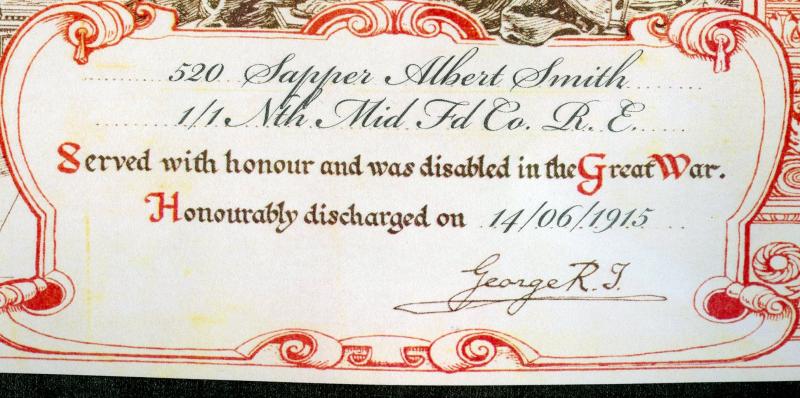 520 Sapper Albert Smith
1/1 Nth Mid Fd Co. R. E.
Served with honour and was disabled in the Great War.
Honourably discharged on 14/06/1915
George R. I.